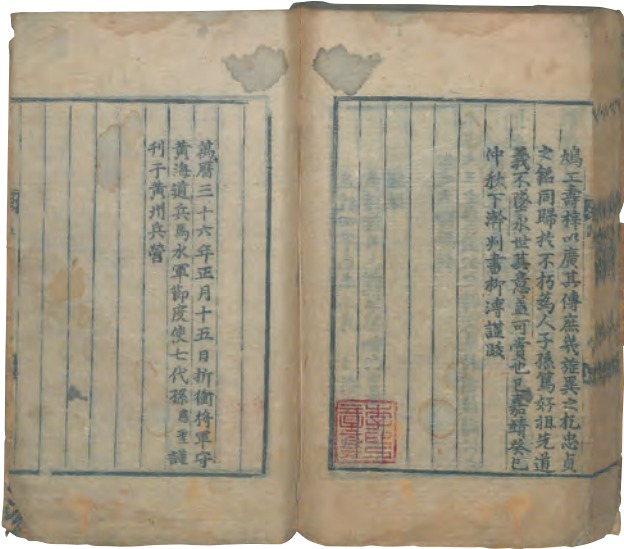 鳩工壽梓以廣其傳庶幾旌異之札忠貞
之銘同歸於不朽爲人子孫篤好祖先道
義不墜永世其意盖可賞也已嘉靖癸巳
仲秋下澣判書柳溥謹跋
萬曆三十六年正月十五日折衝將軍守
黃海道兵馬水軍節度使七代孫應聖謹
刊于黃州兵營